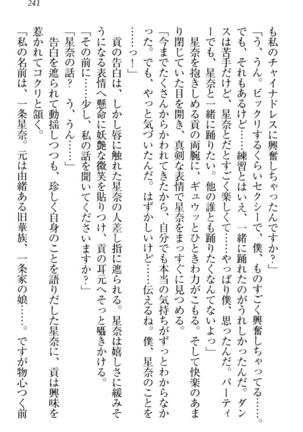 241
も私のチャイナドレスに興奮しちゃったんですか?」
「う、うん。ビックリするくらいセクシーで、僕、ものすごく興奮しちゃってる……。
でも、それもあるけど……練習とはいえ、一緒に踊れたのがうれしくて……僕、ダン
スは苦手だけど、星奈とだとすごく楽しくて……やっぱり僕、思ったんだ。パーティ
でも、星奈と一緒に踊りたい。他の誰とも踊りたくなんてないよ」
星奈を抱きしめる貢の両腕に、ギュウッとひときわ力が込められる。そして快楽のあま
り閉じていた目を開き、真剣な表情で星奈をまっすぐに見つめる。
「今までたくさんからかわれてきたから、自分でも本当の気持ちがずっとわからなか
った。でも、やっと気づいたんだ。はずかしいけど……伝えるね。僕、星奈のこと」
貢の告白は、しかし唇に触れた星奈の人差し指に遮られる。星奈は嬉しさに緩みそ
うになる表情へ懸命に妖艶な微笑を貼りつけ、貢の耳元へそっと囁きかける。
「その前に……少し、私の話を聞いてくださいますか?」
「星奈の話? う、うん……」
告白を遮られて動揺しつつも、珍しく自身のことを語りだした星奈に、貢は興味を
惹かれてコクリと頷く。
「私の名前は、一条星奈。元は由緒ある旧華族、一条家の娘……。ですが物心つく前